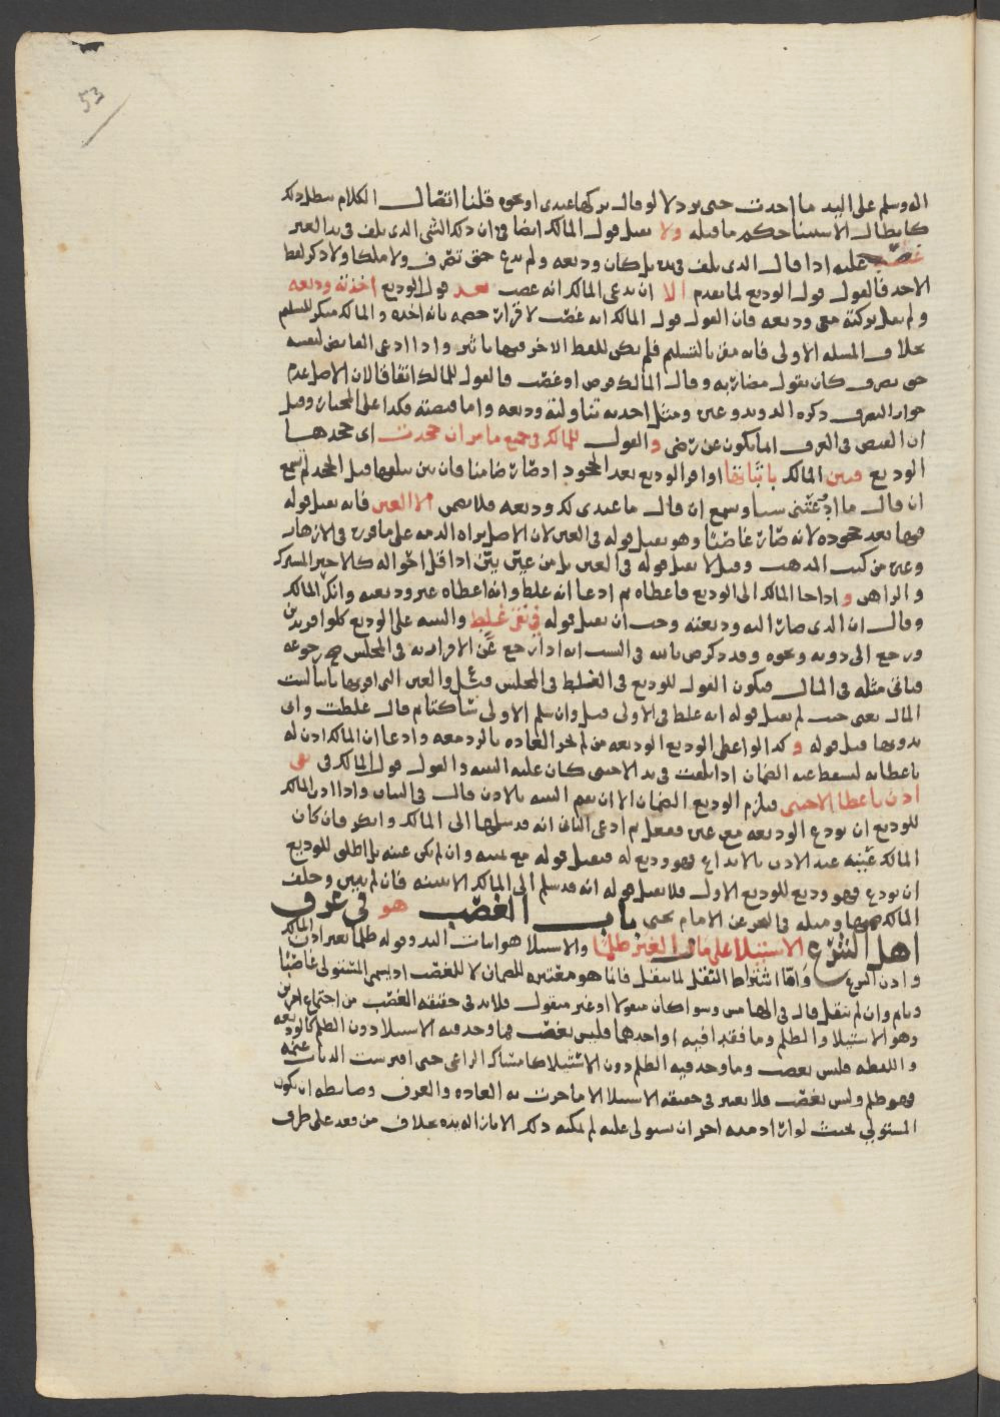 53
اله وسلم على اليد ما اخدت حتى ترد لا لو قال تركها عندى او نحوه قلنا اتصال الكلام يبطل ذلك
كابطال الاستثنا حكم ما قبله ولا يقبل قول المالك ايضا في ان ذلك الشى الذى تلف في يد الغير
غصب عليه اذا قال الذى تلف في يده بل كان وديعه ولم يدع حتى تصرف ولا ملكا ولا ذكر لفظ
الاخذ فالقول قول الوديع لما تقدم الا ان يدعى المالك انه غصب بعد قول الوديع اخذته وديعه
ولم يقل تركته معى وديعه فان القول قول المالك انه غصب لاقرار خصمه بانه اخذه والمالك منكر للتسليم
بخلاف المسئله الاولى فانه مقر بالتسليم فلم يكن للفظ الاخر فيها تاثير واذا ادعى القابض لنفسه
حق تصرف كان يقول مضاربه وقال المالك قرض او غصب فالقول للمالك اتفاقا لان الاصل عدم
جواز التصرف ذكره الدويدى وغيره ومثل اخذته تناولته وديعه واما قبضته فكذا على المختار وقيل
ان القبض في العرف انما يكون عن رضى والقول للمالك في جميع ما مر ان جحدت اى جحدها
الوديع فبين المالك باثباتها او اقر الوديع بعد الجحود اذ صار ضامنا فان بين بتلفها قبل الجحد لم تسمع
ان قال ما اودعتنى شيا وتسمع ان قال ما عندى لك وديعه فلا يضمن الا العين فانه يقبل قوله
فيها بعد جحوده لانه صار غاصبا وهو يقبل قوله في العين لان الاصل براه الذمه على ما قرر في الازهار
وغيره من كتب المذهب وقيل لا يقبل قوله في العين بل من عين بين اذ اقل احواله كالاجير المشترك
والراهن واذا جا المالك الى الوديع فاعطاه ثم ادعا انه غلط وانه اعطاه غير وديعته وانكر المالك
وقال ان الذى صار اليه وديعته وجب ان يقبل قوله في نفى غلط والبينه على الوديع كلو اقر بدين
ورجع الى دونه ونحوه وقد ذكر ض بالله في البيت انه اذا رجع عن الاقرار به في المجلس صح رجوعه
فياتى مثله في المال فيكون القول للوديع في الغلط في المجلس
المال يعنى حيث لم يقبل قوله انه غلط في الاولى قبل وان سلم الاولى ساكتا ثم قال غلطت واتى
بدونها قبل قوله وكذا لو اعطى الوديع الوديعه من لم تجر العاده بالرد معه وادعا ان المالك اذن له
باعطايه ليسقط عنه الضمان اذا تلفت في يد الاجنبى كان عليه البينه والقول قول المالك في نفى
اذن باعطا الاجنبى فيلزم الوديع الضمان الا ان يقيم البينه بالاذن قال في البيان واذا اذن المالك
للوديع ان يودع الوديعه مع غيره ففعل ثم ادعى الثانى انه قد سلمها الى المالك وانكر فان كان
المالك عينه عند الاذن بالايداع فهو وديع له فيقبل قوله مع يمينه وان لم يكن عينه بل اطلق للوديع
ان يودع فهو وديع للوديع الاول فلا يقبل قوله انه قد سلم الى المالك الا ببينه فان لم يبين وحلف
المالك ضمنها ومثله في البحر عن الامام يحيى باب الغصب هو في عرف
اهل الشرع الاستيلا على مال الغير ظلما والاستيلا هو اثبات اليد وقوله ظلما بغير اذن المالك
واذن الشرع واما اشتراط النقل لما ينقل فانما هو معتبره للضمان لا للغصب اذ يسمى المستولى غاصبا
وياثم وان لم ينقل قال في الهامش وسوا كان منقولا او غير منقول فلا بد في حقيقه الغصب من اجتماع امرين
وهو الاستيلا والظلم وما فقدا فيه او احدهما فليس بغصب فما وجد فيه الاستيلا دون الظلم كالوديعه
واللقطه فليس بغصب وما وجد فيه الظلم دون الاستيلا كامساك الراعى حتى افترست الذياب غنمه
فهو ظلم وليس بغصب فلا يعتبر في حقيقه الاستيلا الا ما جرت به العاده والعرف وضابطه ان يكون
المستولى بحيث لو اراد معه اخر ان يستولى عليه لم يمكنه ذلك الا بازاله يده بخلاف من قعد على طرف